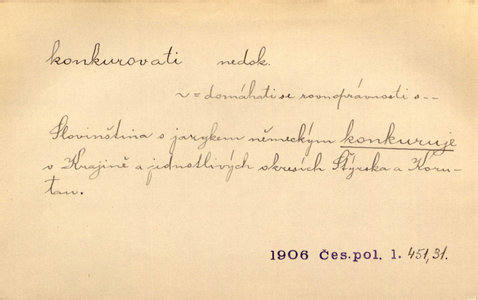 konkurovati nedok.
~ = domáhati se rovnoprávnosti s ---
Slovinština s jazykem německým konkuruje
v Krajině a jednotlivých okresích Štýrska a Koru-
tan.
1906 Čes. pol. 1. 451,31.